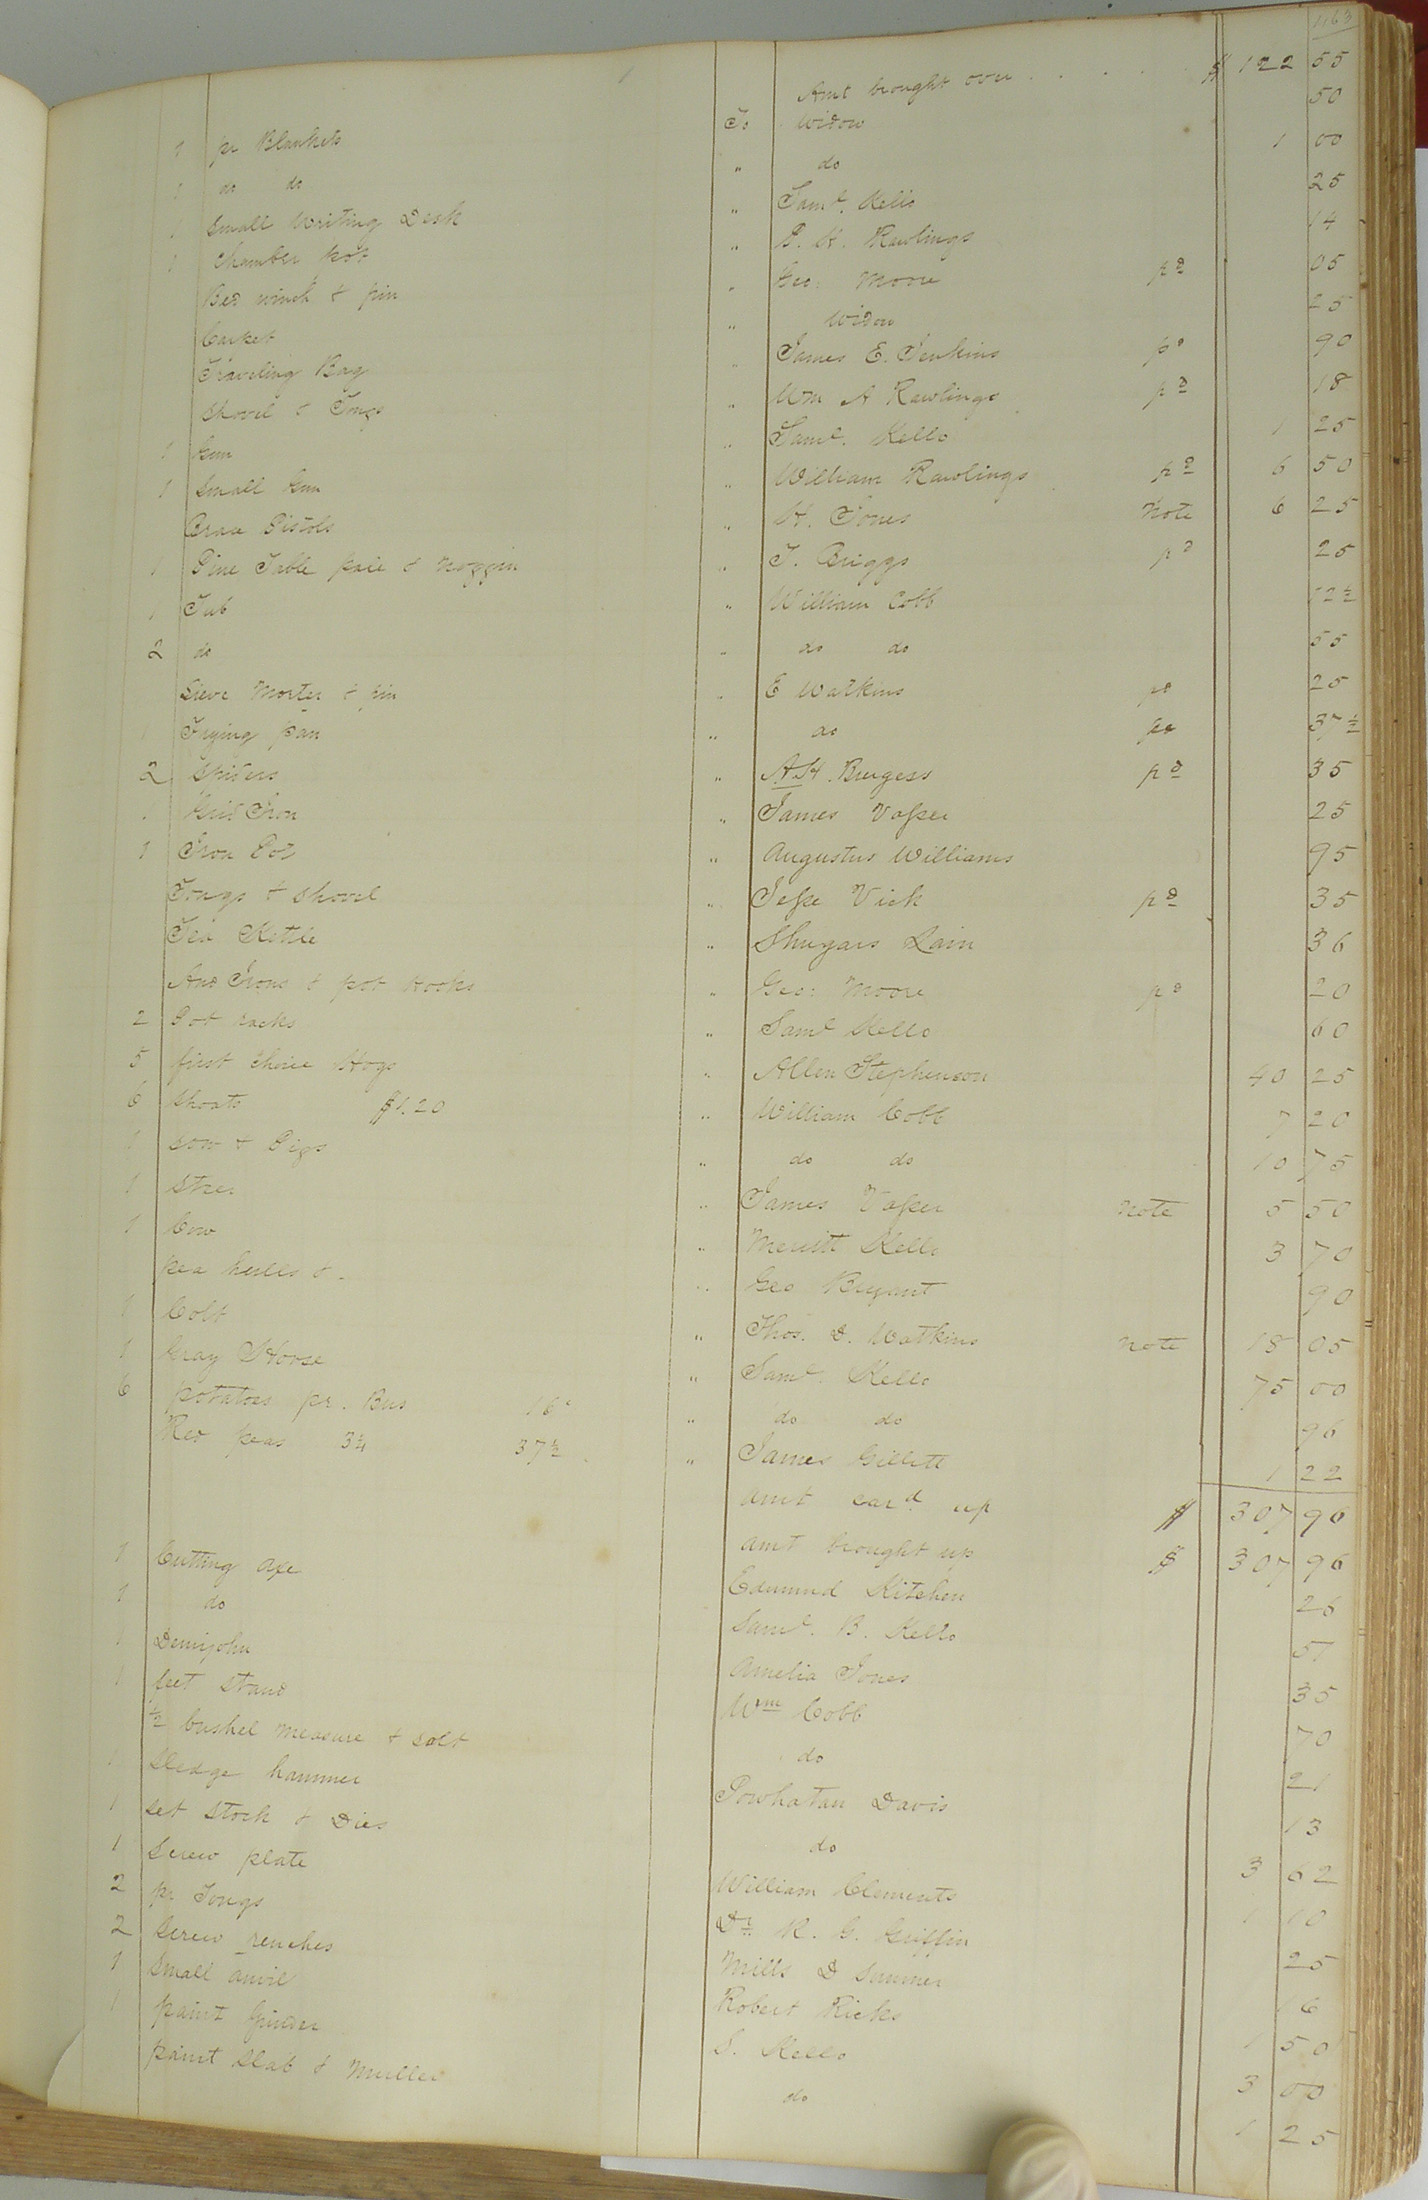 1163
Amt brought over . . . . . $ 122 55
1 pr Blankets To Widow 50
1 do do " do 1 00
1 Small Writing Desk " Saml. Kello 25
1 Chamber pot " B. H. Rawlings 14
Bed winch & pin " Geo: Moore pd 05
" Widow 25
Traveling Bag " James E. Jenkins pd 90
Shovel & Tongs " Wm A Rawlings pd 18
1 Gun " Saml. Kello 1 25
1 Small Gun " William Rawlings pd 6 50
Brace Pistols " H. Jones Note 6 25
1 Pine Table paie & Noggin " T. Briggs pd 25
1 Tub " William Cobb 12½
2 do " do do 55
Sieve Morter & pin " E Watkins pd 25
1 Frying pan " do pd 37½
2 Spiders " A.H. Burgess pd 35
1 Grid Iron " James Vasser 25
1 Iron Pot " Augustus Williams 95
Tongs & Shovel " Jesse Vick pd 35
Tea Kettle " Shugars Lain 36
And Irons & pot Hooks " Geo: Moore pd 20
2 Pot racks " Saml Kello 60
5 first choice Hogs " Allen Stephenson 40 25
6 Shoats $1.20 " William Cobb 7 20
1 sow & Pigs " do do 10 75
1 Steer " James Vasser Note 5 50
1 Cow " Merritt Kello 3 70
pea hulls &. " Geo Bryant 90
1 Colt " Thos. D. Watkins Note 18 05
1 Gray Horse " Saml. Kello 75 00
6 potatoes pr. Bus 16c " do do 96
Red peas 3¼ 37½ " James Gillett 1 22
Amt card. up $ 307 96
Amt brought up $ 307 96
1 Cutting Axe Edmund Kitchen 26
1 do Saml. B. Kello 51
1 Demijohn Amelia Jones 35
1 feet Stand Wm Cobb 70
½ bushel Measure & Salt do 21
1 Sledge hammer Powhatan Davis 13
1 set Stock & Dies do 3 62
1 Screw plate William Clements 1 10
2 pr Tongs Dr. R. G. Griffin 25
2 Screw renches Mills D Sumner 16
1 Small anvil Robert Ricks 1 50
1 paint Grinder S. Kello 3 00
paint Slab & Muller do 1 25